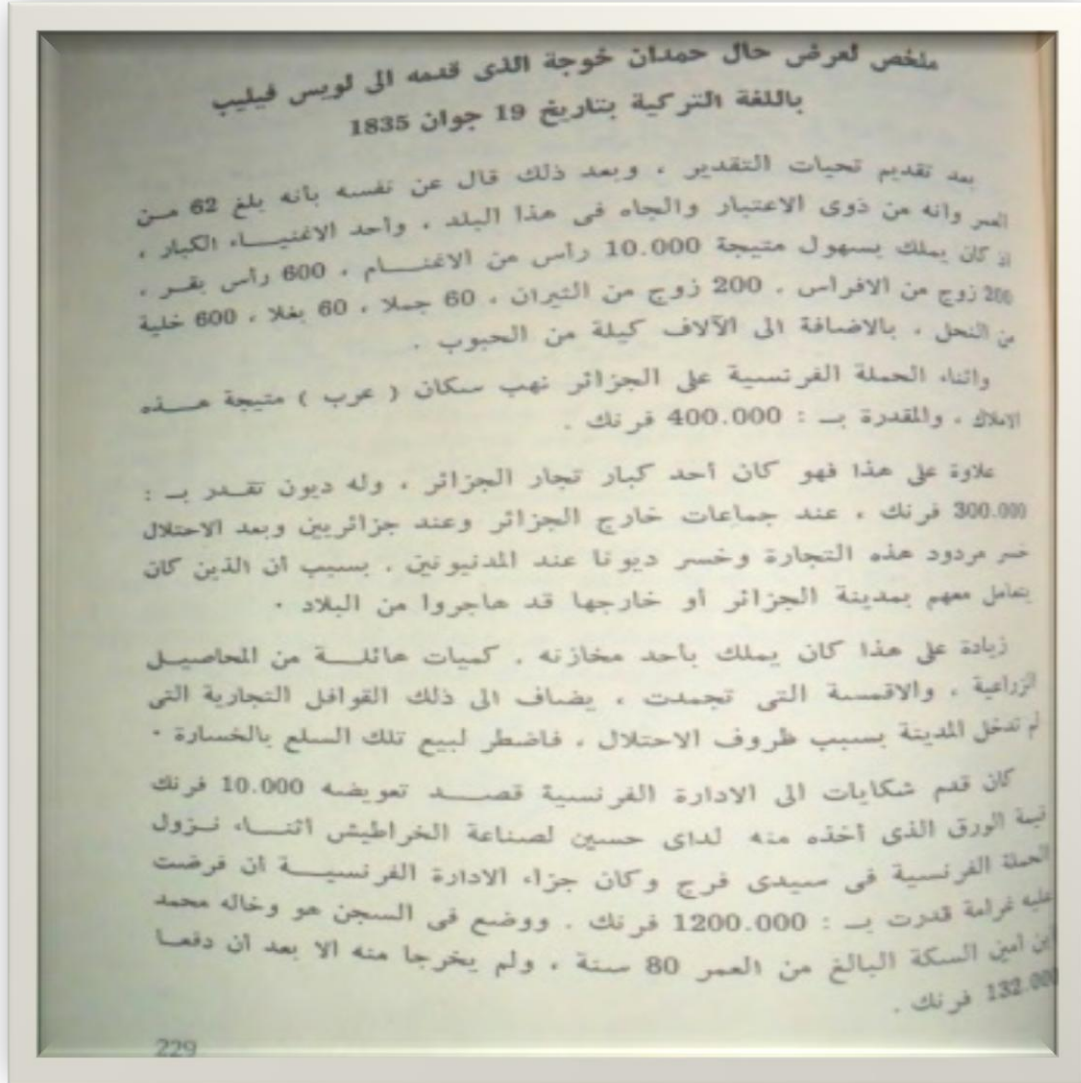 ملخص لعرض حال حمدان خوجة الذى قدمه الى لويس فيليب
باللغة التركية بتاريخ 19 جوان 1835
بعد تقديم تحيات التقدير ، وبعد ذلك قال عن نفسه بأنه بلغ 62 مـن
العمر وانه من ذوى الاعتبار والجاه فى هذا البلد ، وأحد الاغنيـــاء الكبار ،
اذ كان يملك بسهول متيجة 10.000 رأس من الاغنـــام ، 600 رأس بقـر ،
200 زوج من الافراس ، 200 زوج من الثيران ، 60 جملا ، 60 بغلا ، 600 خلية
من النحل ، بالاضافة الى الآلاف كيلة من الحبوب .
واثناء الحملة الفرنسية على الجزائر نهب سكان ( عرب ) متيجة هـــذه
الاملاك ، والمقدرة بـ : 400.000 فرنك .
علاوة على هذا فهو كان أحد كبار تجار الجزائر ، وله ديون تقـدر بـ :
300.000 فرنك ، عند جماعات خارج الجزائر وعند جزائريين وبعد الاحتلال
خسر مردود هذه التجارة وخسر ديونا عند المدنيونين ، بسبب أن الذين كان
يتعامل معهم بمدينة الجزائر أو خارجها قد هاجروا من البلاد .
زيادة على هذا كان يملك بأحد مخازنه ، كميات هائلـــة من المحاصيـل
الزراعية ، والاقمسة التى تجمدت ، يضاف الى ذلك القوافل التجارية التى
لم تدخل المدينة بسبب ظروف الاحتلال ، فاضطر لبيع تلك السلع بالخسارة .
كان قدم شكايات الى الادارة الفرنسية قصـــد تعويضه 10.000 فرنك
قيمة الورق الذى أخذه منه لداى حسين لصناعة الخراطيش اثنـــاء نـزول
الحملة الفرنسية فى سيدى فرج وكان جزاء الادارة الفرنسيـــة أن فرضت
عليه غرامة قدرت بـ : 1200.000 فرنك . ووضع فى السجن هو وخاله محمد
ابن أمين السكة البالغ من العمر 80 سنة ، ولم يخرجا منه الا بعد أن دفعـا
132.000 فرنك .
229